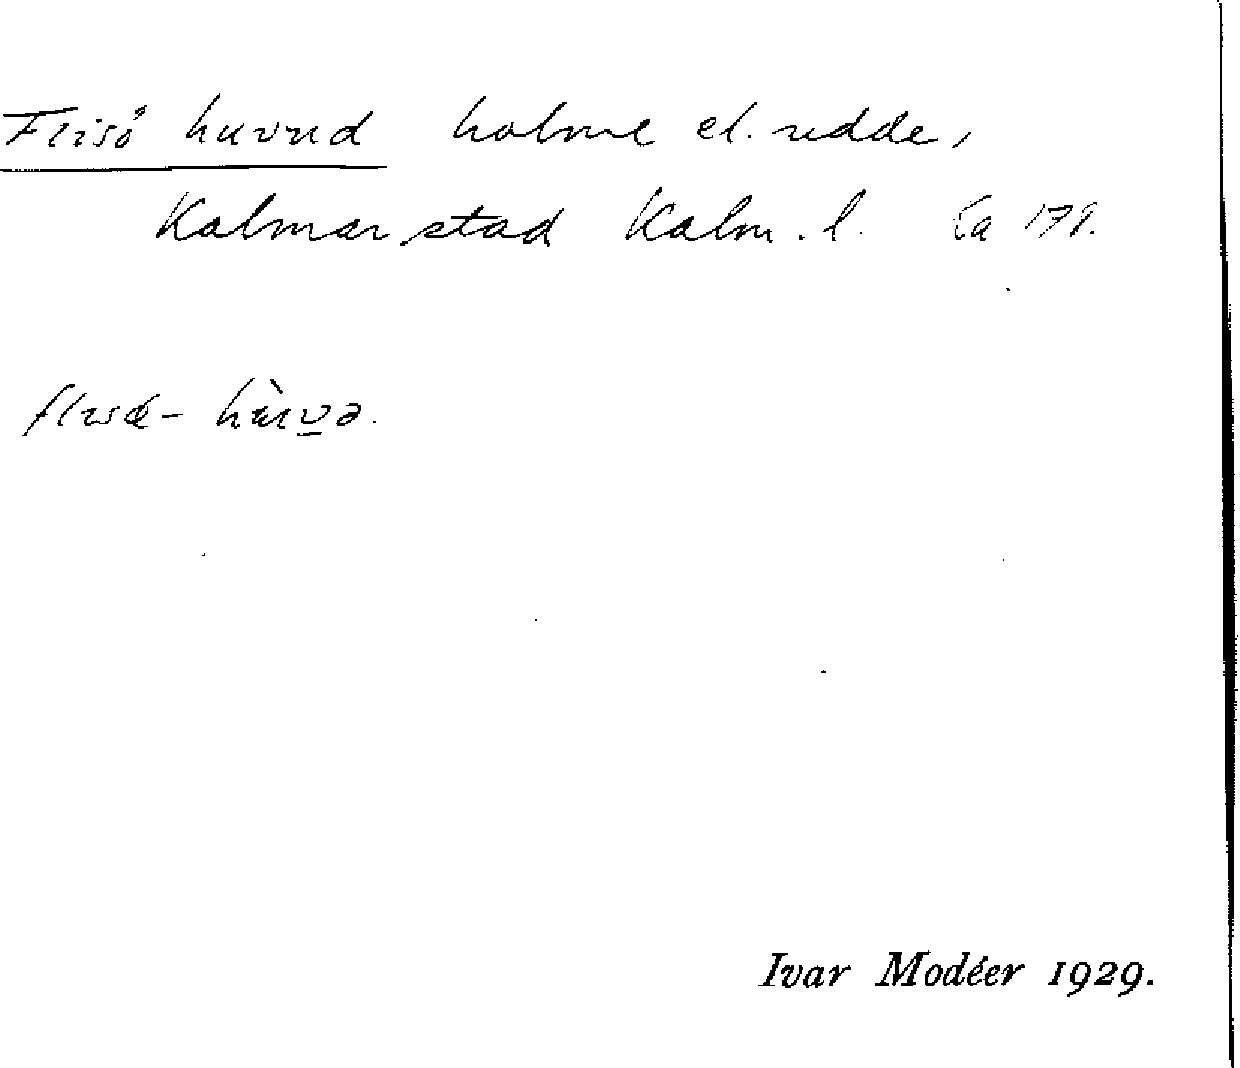 Flisö huvud holme el. udde,
Kalmar stad Kalm. l. Ea 179.
flisø- hùvə.
Ivar Modéer 1929.